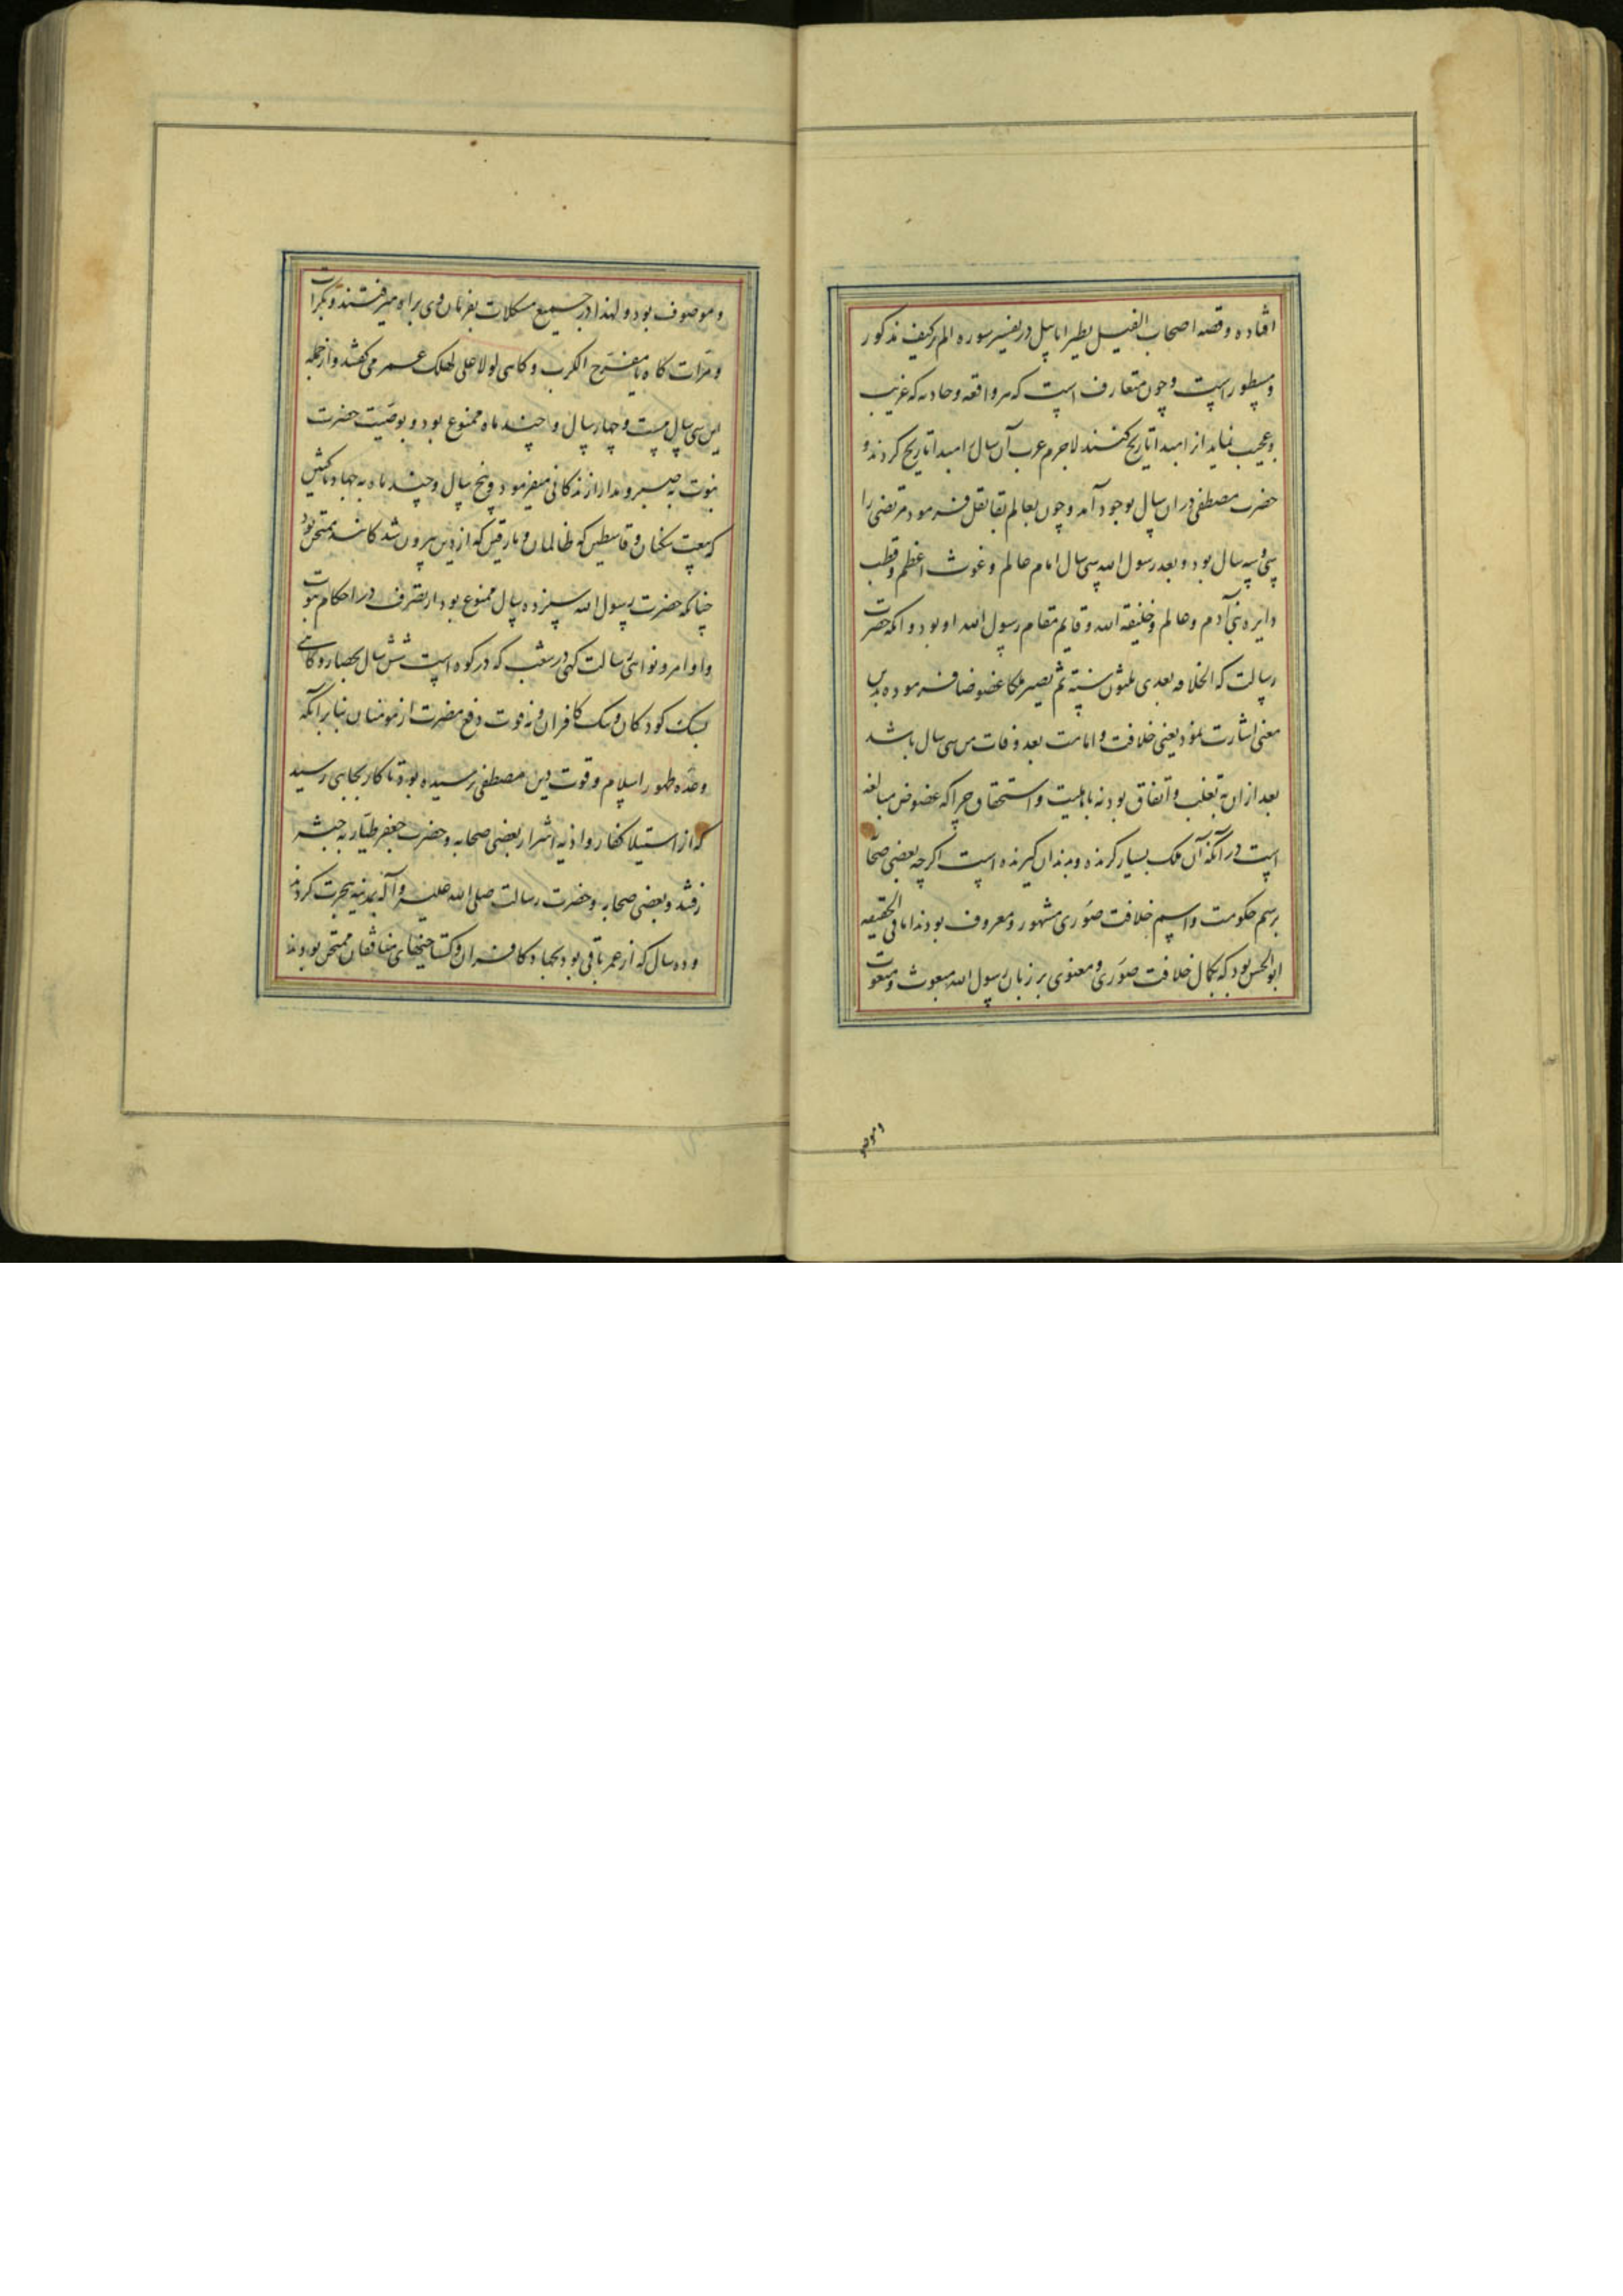 افتاده و قصه اصحاب الفیل بطیرا ابابیل در تفسیر سوره الم تر کیف مذکور
و مسطور است و چون متعارف است که هر واقعه و حادثه که غریب
و عجیب نماید از ابتدا تاریخ کنند لاجرم عرب آن سال ابتدا تاریخ کردند و
حضرت مصطفی در ان سال بوجود آمد و چون بعالم بقا نقل فرمود مرتضی را
سی و سه سال بود و بعد رسول الله سی سال امام عالم و غوث اعظم و قطب
دایره بنی آدم و عالم و خلیفة الله و قایم مقام رسول الله او بود و آنکه حضرت
رسالت که الخلافه بعدی ثلثون سنته ثم یصیر ملکا عضوضا فرموده بدین
معنی اشارت نمود یعنی خلافت و امامت بعد وفات من سی سال باشد
بعد ازان به تغلب و اتفاق بود نه باهلیت و استحقاق چرا که عضوض مبالغه
است در آنکه آن ملک بسیار گزنده و بدندان گیرنده است اگرچه بعضی صحابا
برسم حکومت و اسم خلافت صوری مشهور و معروف بودند اما فی الحقیقه
ابو الحسن بود که بکمال خلافت صوری و معنوی بر زبان رسول الله مبعوث و منعوت
و موصوف
و موصوف بود و لهذا در جمیع مشکلات بفرمان وی براه میرفتند و بکرات
و مرات گاه یا مفرج الکرب و گاهی لولا علی لهلک عمر می گفتند و از جمله
این سی سال بیست و چهار سال و چند ماه ممنوع بود و بوصیت حضرت
نبوت به صبر و مدارا زندگانی میفرمود و پنج سال و چند ماه به جهاد ناکثین
که بیعت شکنان و قاسطین که ظالمان و مارقین که از دین بیرون شدگانند ممتحن بود
چنانکه حضرت رسول الله سیزده سال ممنوع بود از تصرف در احکام نبوت
و اوامر و نواهی رسالت کهی در شعب که در کوه است شش سال بحصار و گاهی
بسنک کودکان و سک کافران و نه قوت دفع مضرت از مومنان بنابر آنکه
وعده ظهور اسلام و قوت دین مصطفی نرسیده بود تا کار بجایی رسید
که از استیلا کفار و اذیه اشرار بعضی صحابه و حضرت جعفر طیار به حبشه
رفتند و بعضی صحابه و حضرت رسالت صلی الله علیه و آله بمدنیه هجرت کردند
و ده سال که از عمر باقی بود بجهاد کافران و گستاخیهای منافقان ممتحن بودند